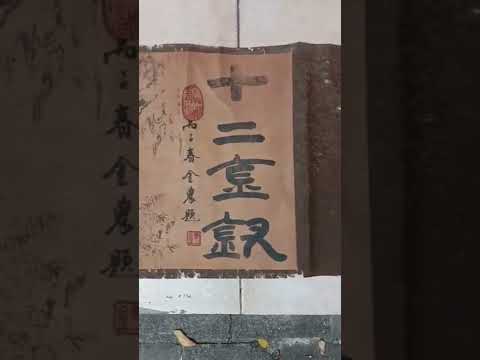 十二金釵
丙子春金農題